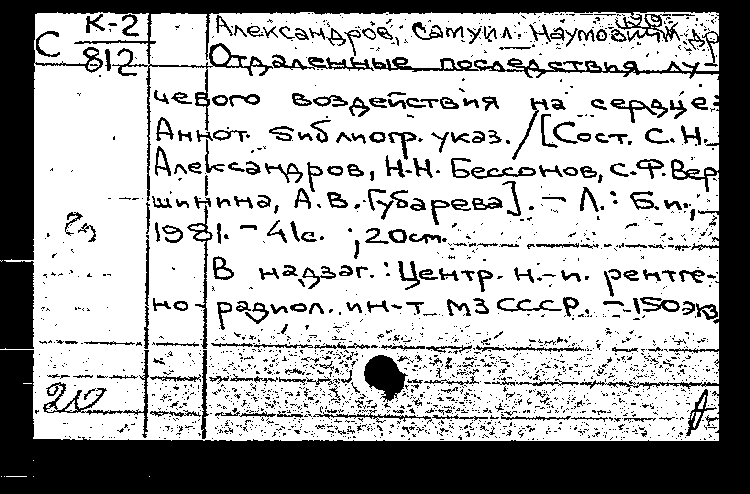 С К-2
812
Александров, Самуил Наумович и др
Отдаленные последствия лу-
чевого воздействия на сердце:
Аннот. библиогр. указ. / [Сост. С.Н.
Александров, Н.Н. Бессонов, С.Ф. Вер
шинина, А.В. Губарева]. – Л.: Б.и.,
1981. – 41с. ; 20см.
В надзаг.: Центр. н.-и. рентге-
но-радиол. ин-т МЗ СССР. – 150экз
А